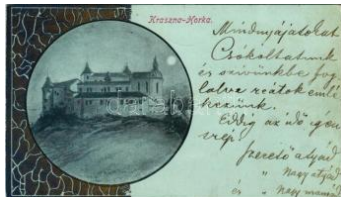 Kraszna-Horka.
Mindnyájatokat
Csókoltatunk
és szivünkbe fog
lalva reátok emlé
kezünk.
Eddig az idő igen
szép!
szerető atyád
" Nagy atyád
és " Nagy mamád